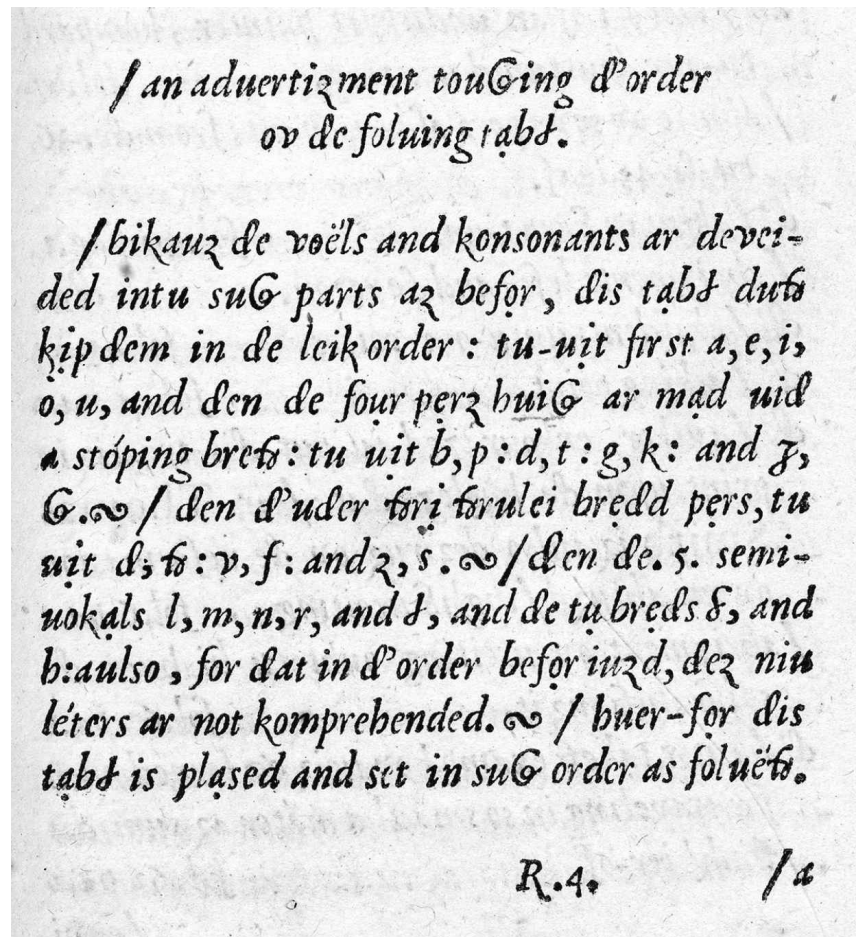 / an aduertiʒment touɕing ð’order
ov ðe foluing tạbł.
/ bikauʒ ðe voëls and konsonants ar devei-
ded intu suɕ parts aʒ befọr, ðis tạbł duþ
kịp ðem in ðe leik order : tu-uịt first a, e, i,
o, u, and ðen ðe foụr pẹrʒ huiɕ ar mạd uið
a stóping breþ : tu uịt b, p : d, t : g, k : and ȷ,
ɕ.∾ / ðen ð’uðer þrị þrulei brẹðd pẹrs, tu
uịt ð, þ : v, f : and ʒ, s .∾ / ðen ðe. 5. semi-
uokạls l, m, n, r, and ł, and ðe tụ brẹðs ʃ, and
h: aulso , for ðat in ð’order befọr iuʒd, ðeʒ niu
léters ar not komprehended. ∾ / huer-fọr ðis
tạbł is plạsed and set in suɕ order as foluëþ.
R.4. / a